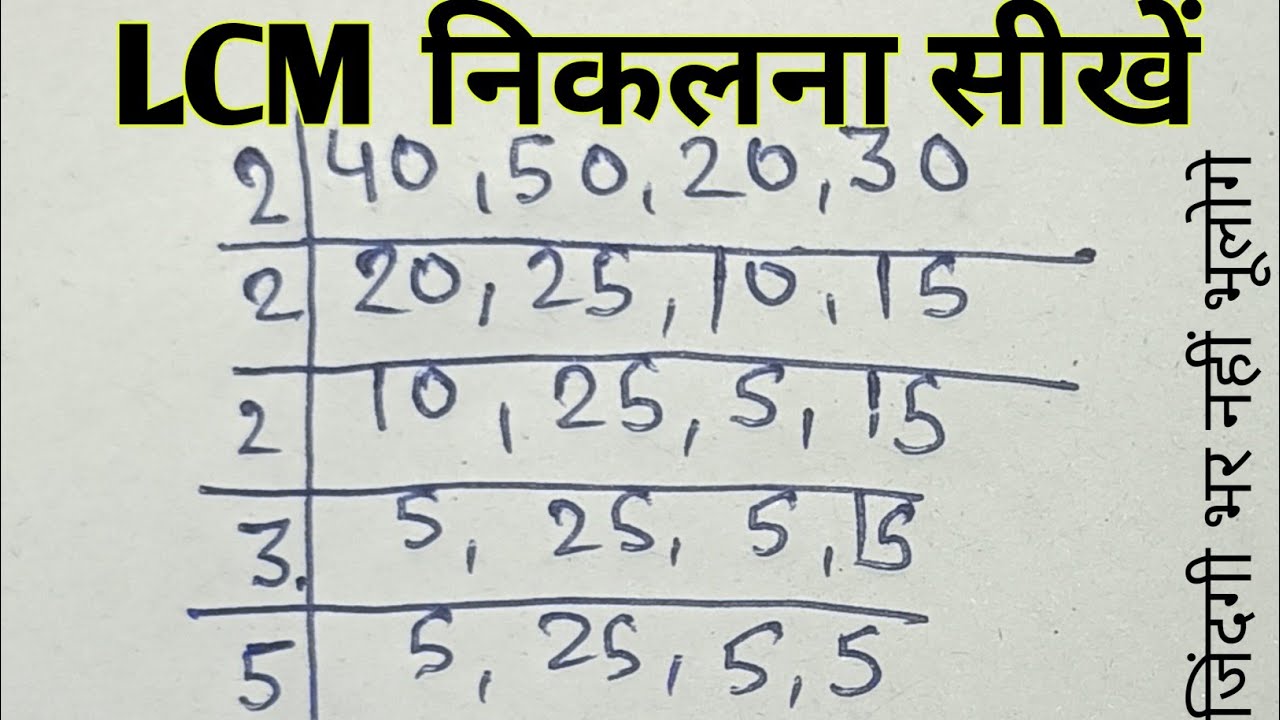 LCM निकलना सीखें
2 40, 50, 20, 30
2 20, 25, 10, 15
2 10, 25, 5, 15
3. 5, 25, 5, 15
5 5, 25, 5, 5
जिंदगी भर नहीं भूलोगे